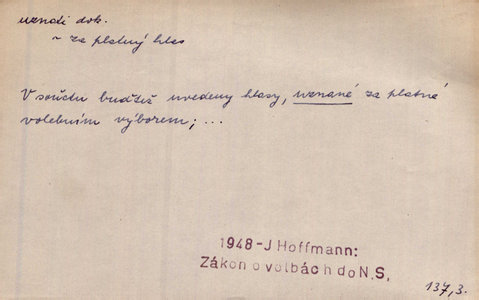 uznati dok.
~ za platný hlas
V součtu buďtež uvedeny hlasy, uznané za platné
volebním výborem; ...
1948 - J Hoffmann:
Zákon o volbách do N.S.
137,3.